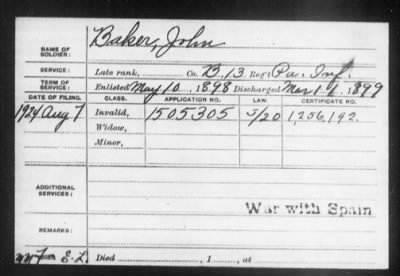 NAME OF SOLDIER: Baker, John
SERVICE: Late rank, Co. B. 13 Reg't Pa. Inf.
TERM OF SERVICE: Enlisted May 10, 1898 Discharged Mar 11, 1899
DATE OF FILING. CLASS. APPLICATION NO. LAW. CERTIFICATE NO.
1924 Aug 7 Invalid, 1505305 5/20 1,256,192.
Widow,
Minor,
ADDITIONAL SERVICES:
War with Spain
REMARKS:
Died , 1 , at